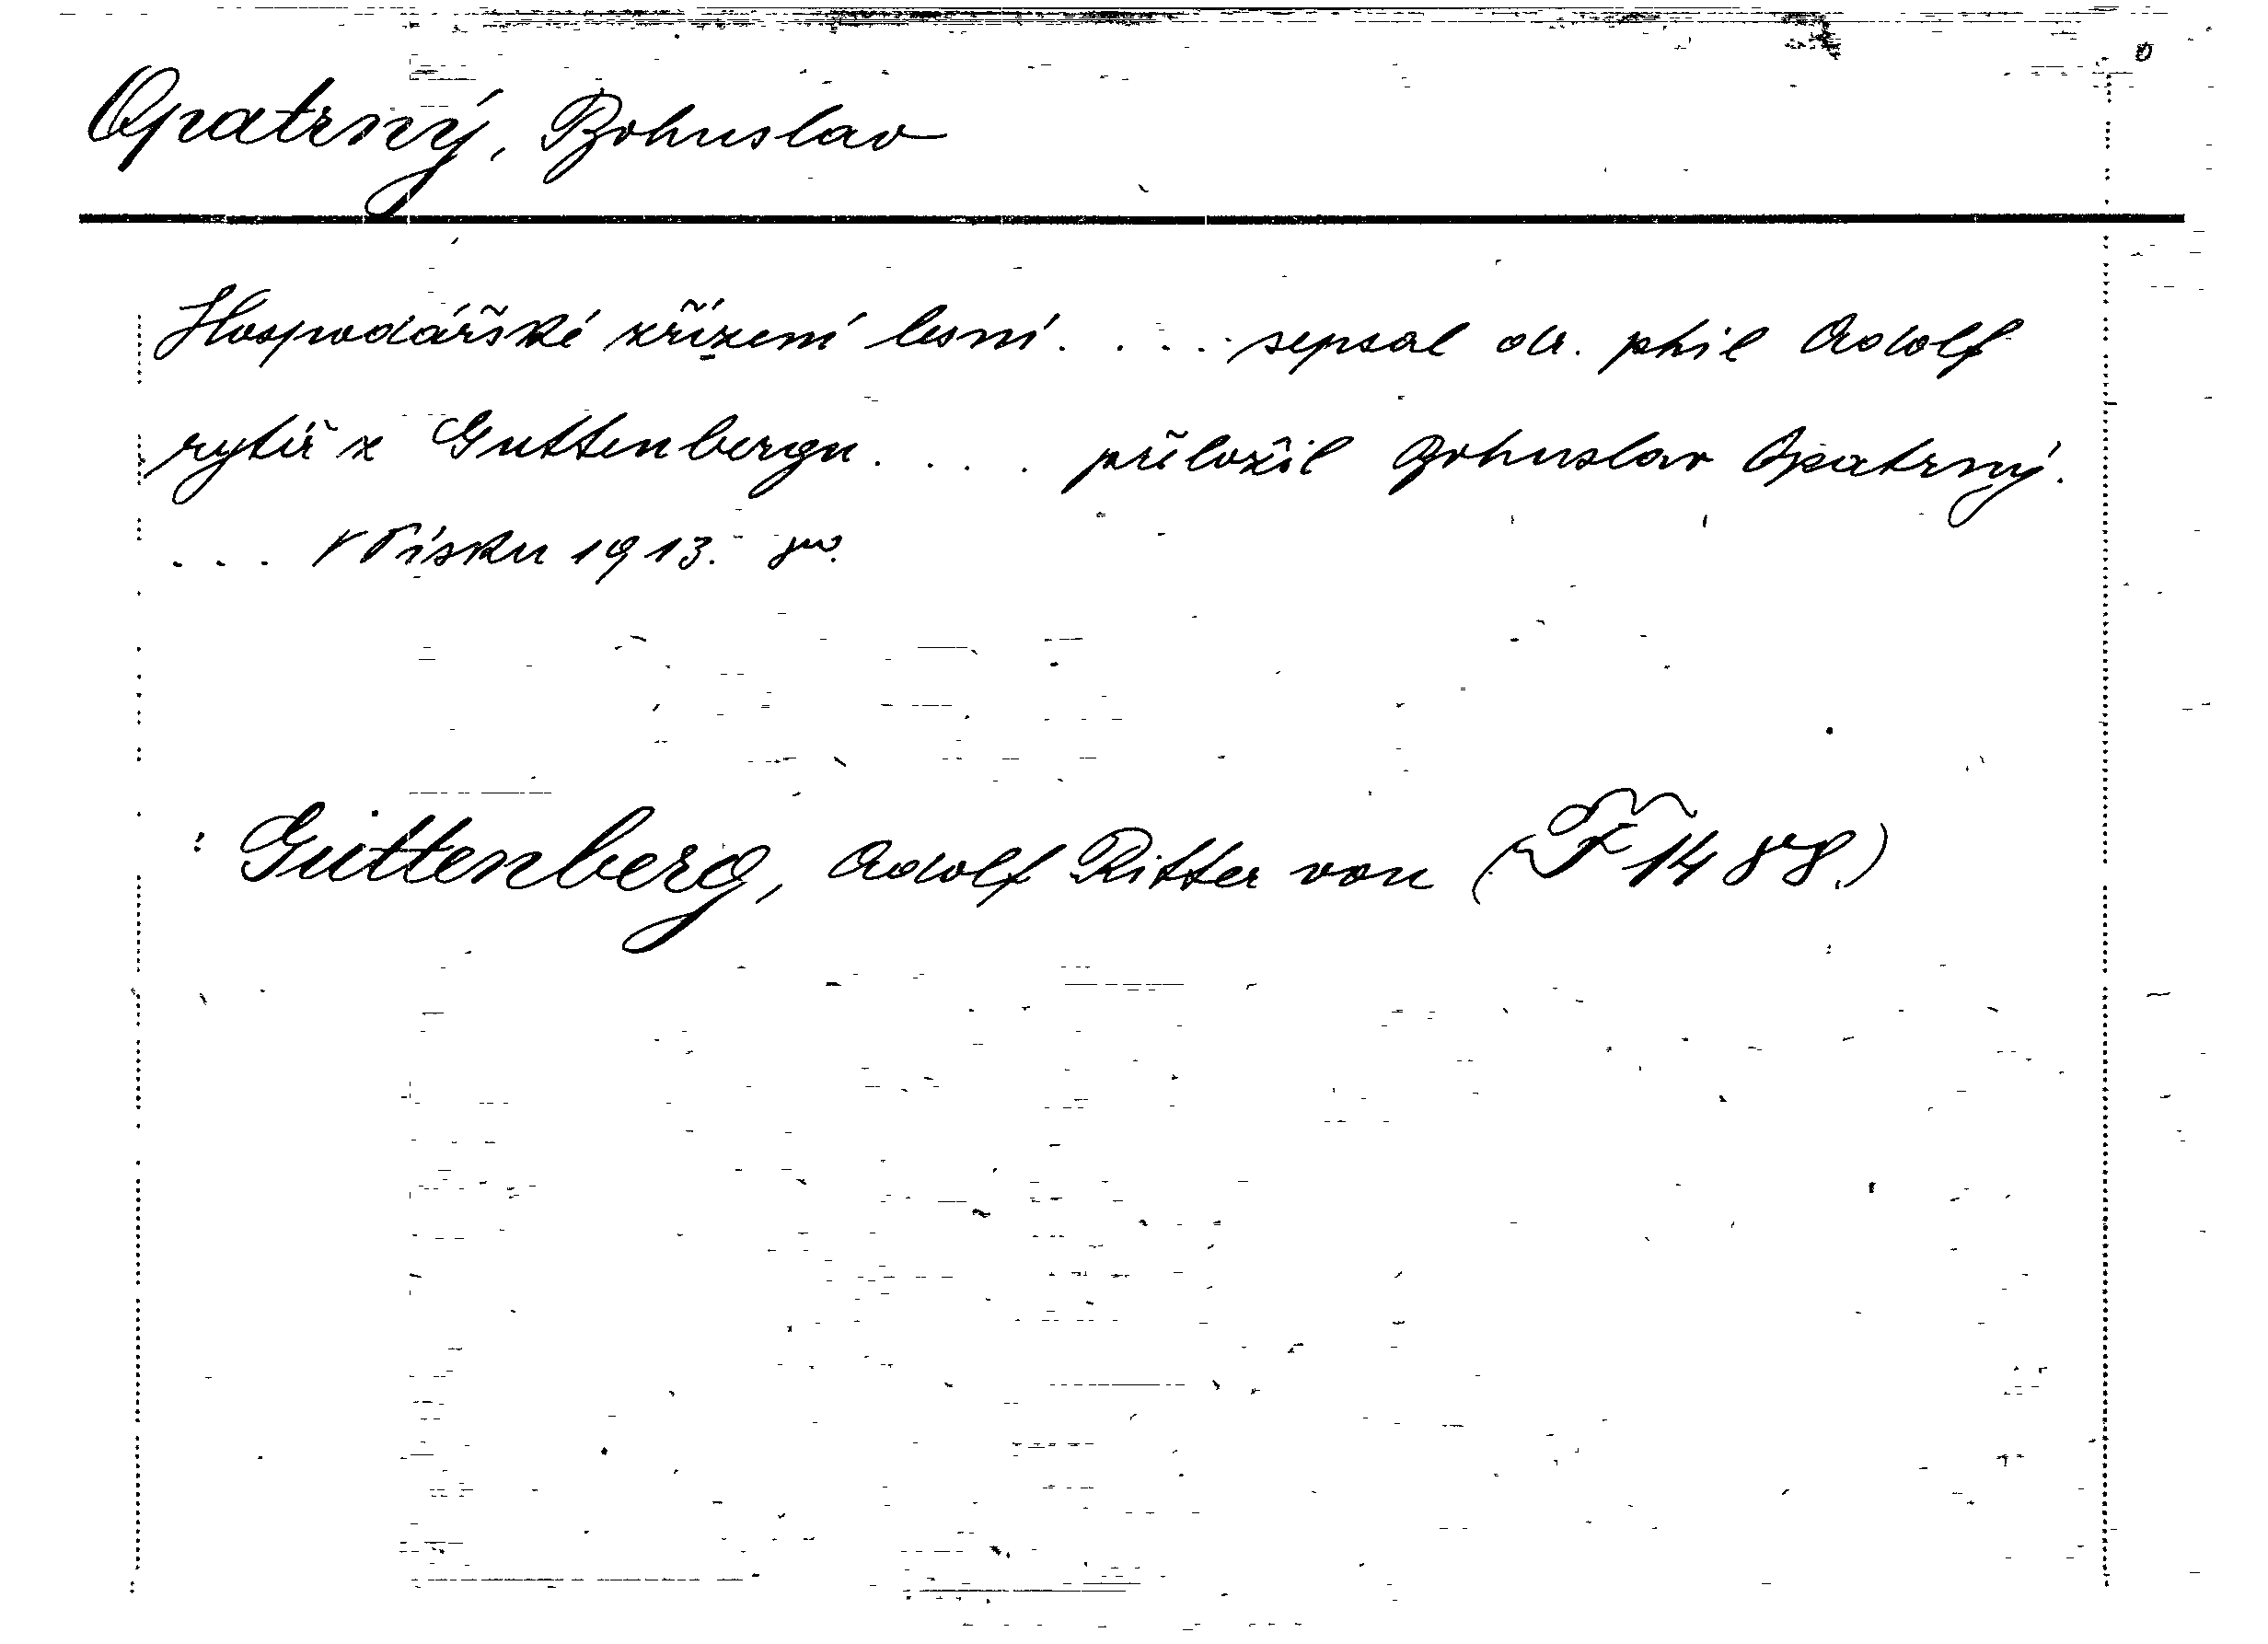 Opatrný, Bohuslav
Hospodářské zřízení lesní. . . . sepsal dr. phil Adolf
rytíř z Guttenbergu. . . . přeložil Bohuslav Opatrný.
. . . V Písku 1913.
: Guttenberg, Adolf Ritter von (F 1488.)